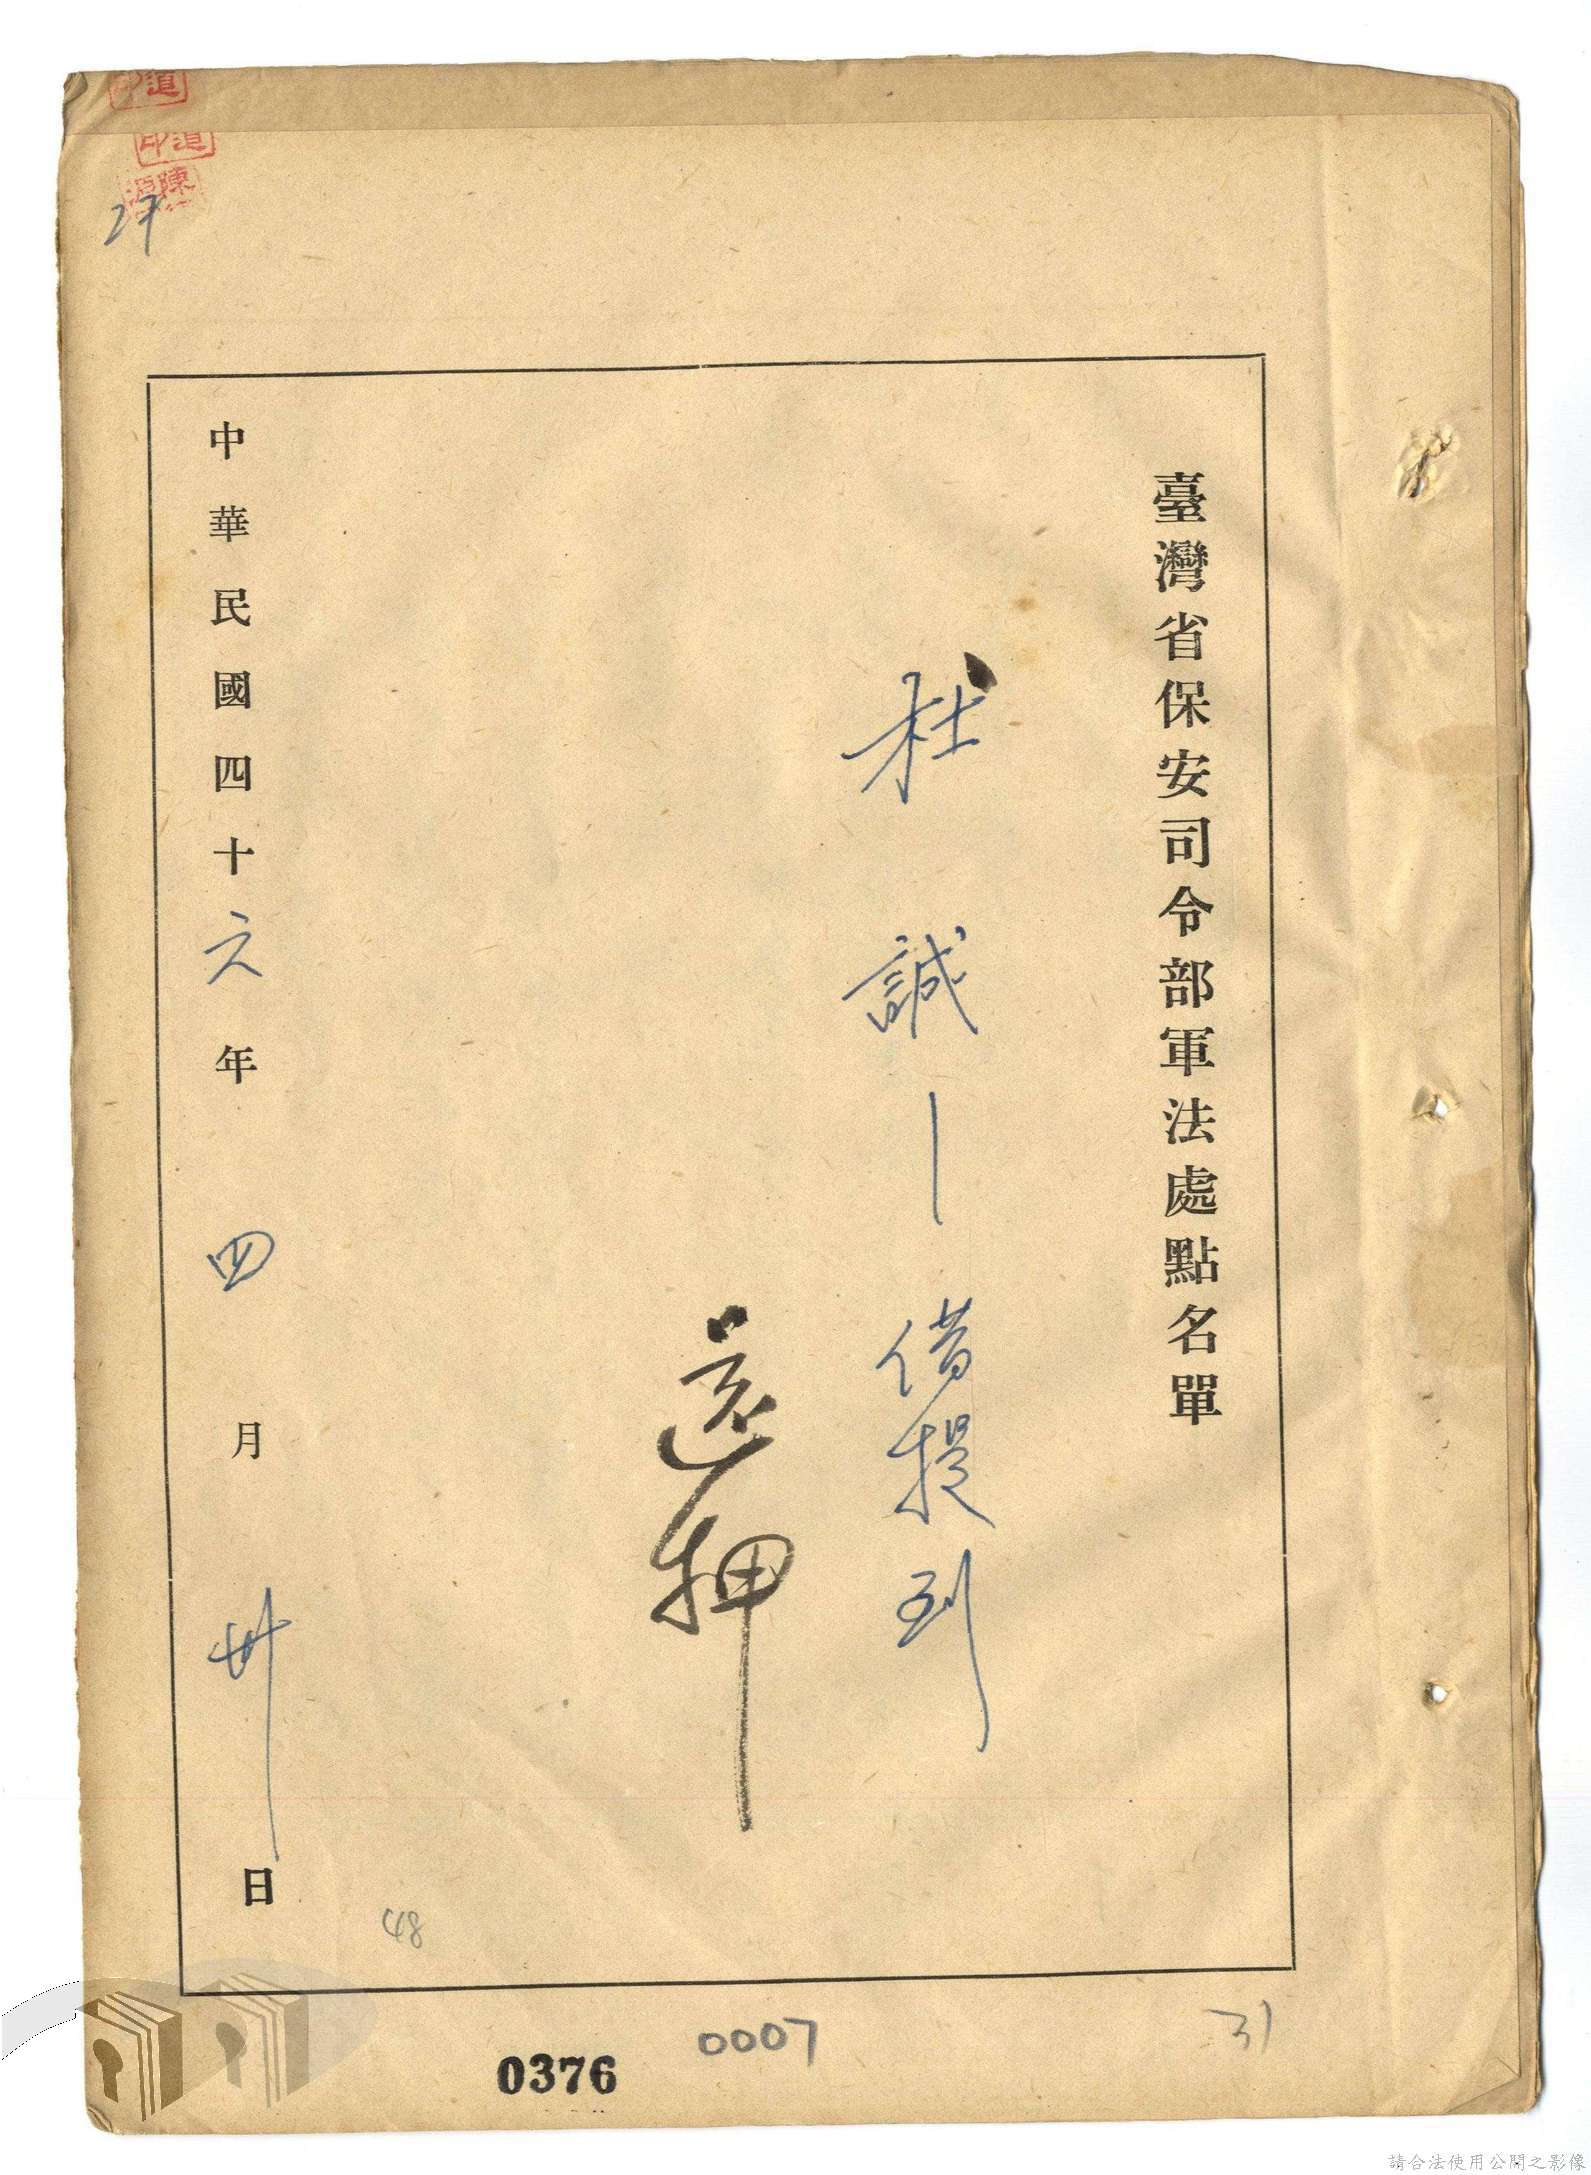 臺灣省保安司令部軍法處點名單
杜誠－借提到
還押
中華民國四十六年四月卅日
27
道
印道
陳
48
0376
0007
31
請合法使用公開之影像